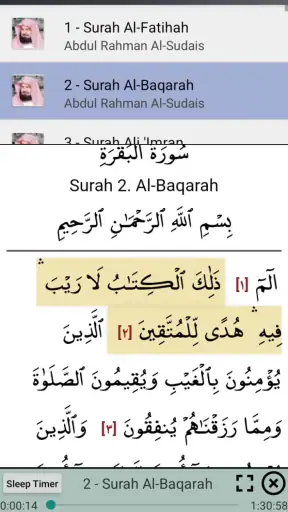 1 - Surah Al-Fatihah
Abdul Rahman Al-Sudais
2 - Surah Al-Baqarah
Abdul Rahman Al-Sudais
3 - Surah Ali 'Imran
سُورَةُ الْبَقَرَةِ
Surah 2. Al-Baqarah
بِسْمِ اللَّهِ الرَّحْمَٰنِ الرَّحِيمِ
الٓمٓ [١] ذَٰلِكَ الْكِتَابُ لَا رَيْبَ ۛ
فِيهِ ۛ هُدًى لِّلْمُتَّقِينَ [٢] الَّذِينَ
يُؤْمِنُونَ بِالْغَيْبِ وَيُقِيمُونَ الصَّلَاةَ
وَمِمَّا رَزَقْنَاهُمْ يُنفِقُونَ [٣] وَالَّذِينَ
Sleep Timer
2 - Surah Al-Baqarah
0:00:14
1:30:58